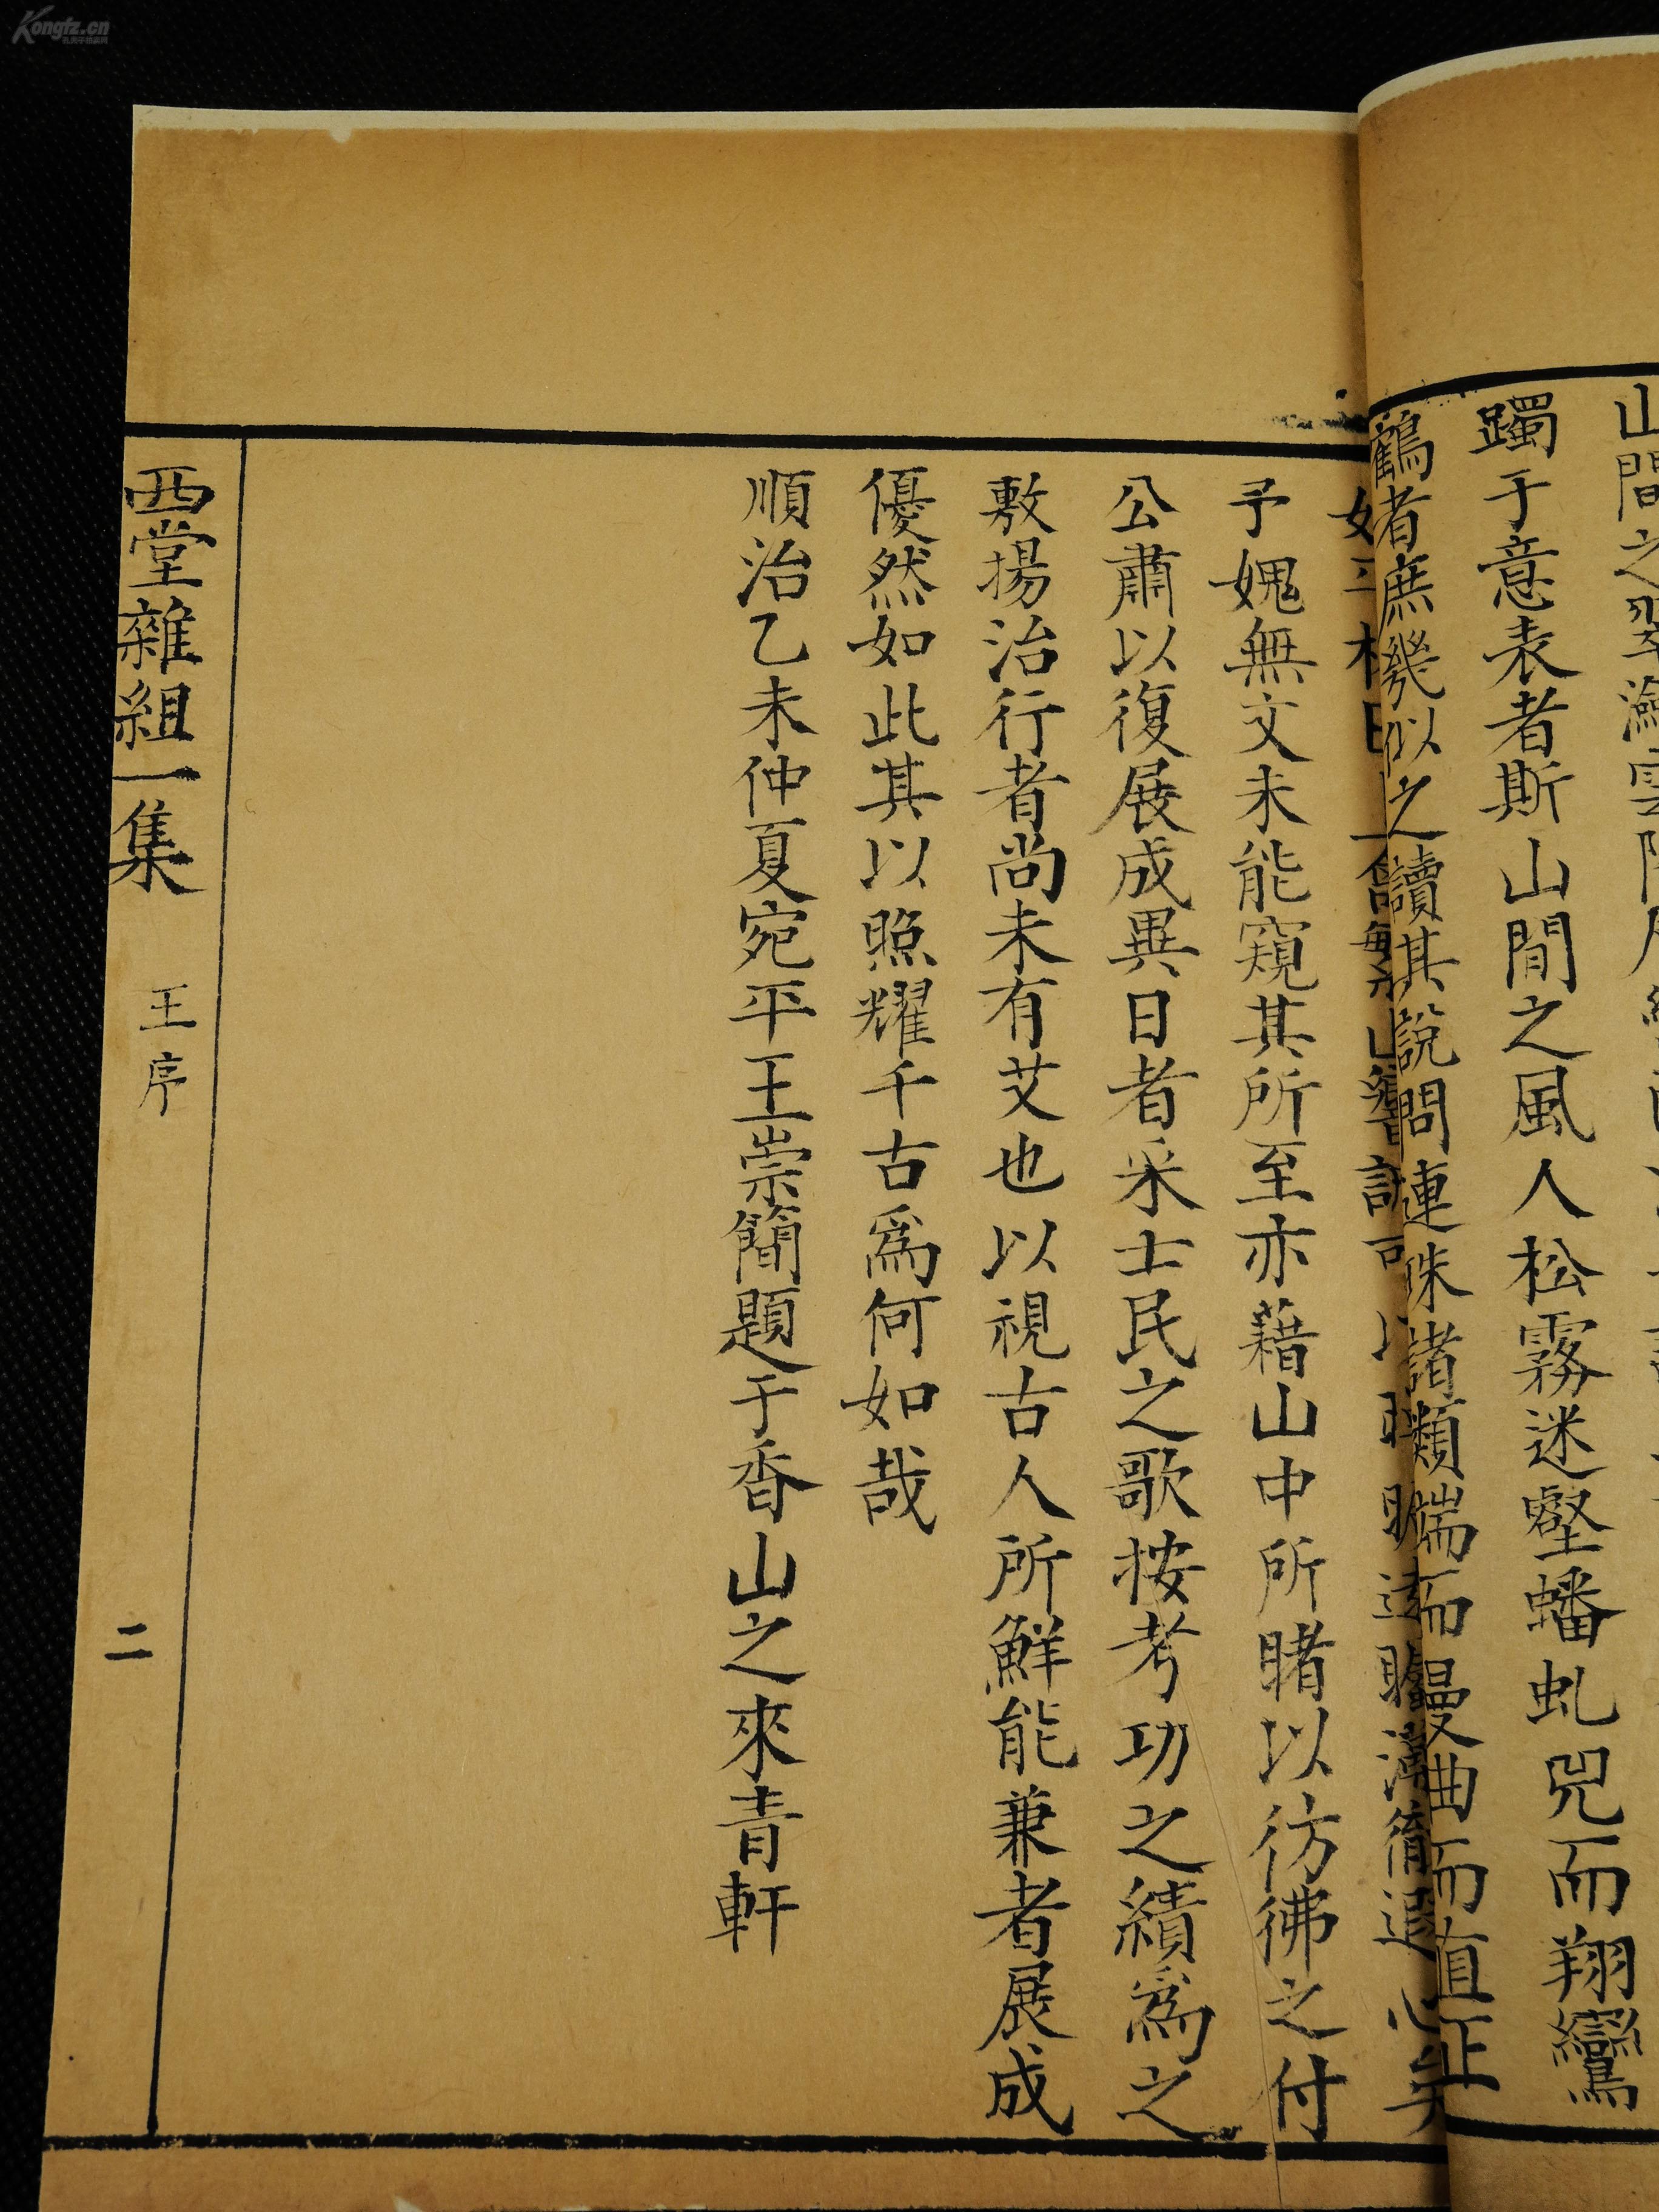 Kongfz.cn
躅于意表者斯山間之風人松霧迷壑蟠虬兕而翔鸞
鶴者庶幾似之讀其說問連珠諸類端而曼曲而直正
予媿無文未能窺其所至亦藉山中所睹以彷彿之付
公肅以復展成異日者采士民之歌按考功之績為之
敷揚治行者尚未有艾也以視古人所鮮能兼者展成
優然如此其以照耀千古爲何如哉
順治乙未仲夏宛平王崇簡題于香山之來青軒
西堂雜組一集 王序 二